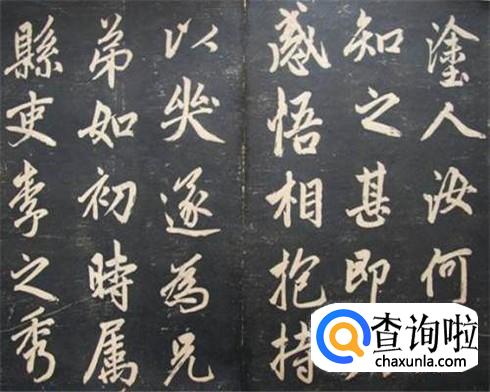 塗人汝何
知之甚即
感悟相抱持
以哭遂為兄
弟如初時属
縣吏李之秀
查询啦
chaxunla.com